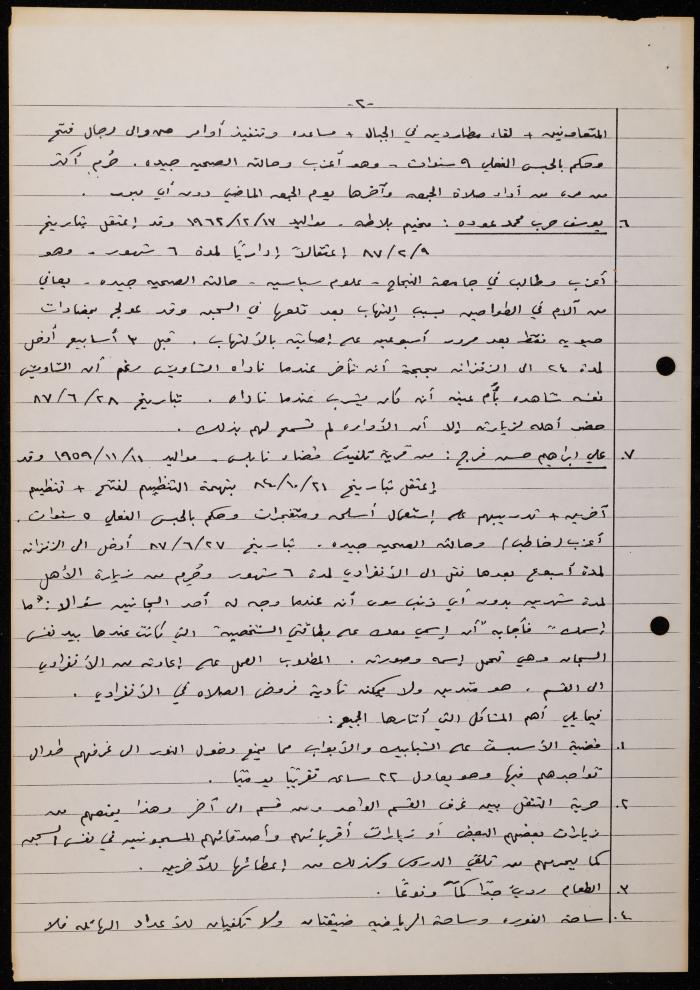 -٢-
المتعاونين + لقاء مطاردين في الجبال + مساعده وتنفيذ أوامر من والى رجال فتح
وحكم بالحبس الفعلي ٩ سنوات - وهو أعزب وحالته الصحيه جيده . حُرم أكثر
من مره من أداء صلاة الجمعه وآخرها يوم الجمعه الماضي دون أي مبرر .
٦. يوسف حرب محمد عوده : مخيم بلاطه - مواليد ١٩٦٢/١٢/١٧ وقد إعتقل بتاريخ
٨٧/٢/٩ إعتقالاً إداريًا لمدة ٦ شهور - وهو
أعزب وطالب في جامعة النجاح - علوم سياسيه - حالته الصحيه جيده - يعاني
من آلام في الطواحين بسبب إلتهاب بعد تلعها في السجن وقد عولج بمضادات
حيويه فقط بعد مرور أسبوعين على إصابته بالألتهاب . قبل ٣ أسابيع أدخل
لمدة ٢٤ الى الزنزانه بحجة أنه تأخر عندما ناداه الشاويش رغم أن الشاويش
نفسه شاهده بأم عينه أن كان يشرب عندما ناداه . بتاريخ ٨٧/٦/٢٨
حضر أهله لزيارته إلا أن الأداره لم تسمح لهم بذلك .
٧. علي ابراهيم حسن فرج : من قرية تلفيت قضاء نابلس - مواليد ١٩٥٩/١١/١١ وقد
إعتقل بتاريخ ٨٤/١٠/٢١ بتهمة التنظيم لفتح + تنظيم
آخرين + تدريبهم على إستعمال أسلحه ومتفجرات وحكم بالحبس الفعلي ٥ سنوات .
أعزب (خاطب) وحالته الصحيه جيده . بتاريخ ٨٧/٦/٢٧ أدخل الى الزنزانه
لمدة أسبوع بعدها نقل الى الأنفرادي لمدة ٦ شهور وحُرم من زيارة الأهل
لمدة شهرين بدون أي ذنب سوى أنه عندما وجه له أحد السجانين سؤالا : "ما
إسمك" فأجابه "أن إسمي معك على بطاقتي الشخصيه" التي كانت عندها بيد نفس
السجان وهي تحمل إسمه وصورته . المطلوب العمل على إعادته من الأنفرادي
الى القسم . هو متدين ولا يمكنه تأدية فروض الصلاه في الأنفرادي .
فيما يلي أهم المشاكل التي أثارها الجميع :
١. قضية الأسبست على الشبابيك والأبواب مما يمنع دخول النور الى غرفهم طوال
تواجدهم فيها وهو يعادل ٢٢ ساعه تقريبًا يوميًا .
٢. حرية التنقل بين غرف القسم الواحد ومن قسم الى آخر وهذا يمنعهم من
زيارات بعضهم البعض أو زيارات أقربائهم وأصدقائهم المسجونين في نفس السجن
كما يحرمهم من تلقي الدروس وكذلك من إعطائها للآخرين .
٣. الطعام رديئ جدًا كمًا ونوعًا .
٤. ساحة الفوره وساحة الرياضيه ضيقتان ولا تكفيان للأعداد الهائله فلا